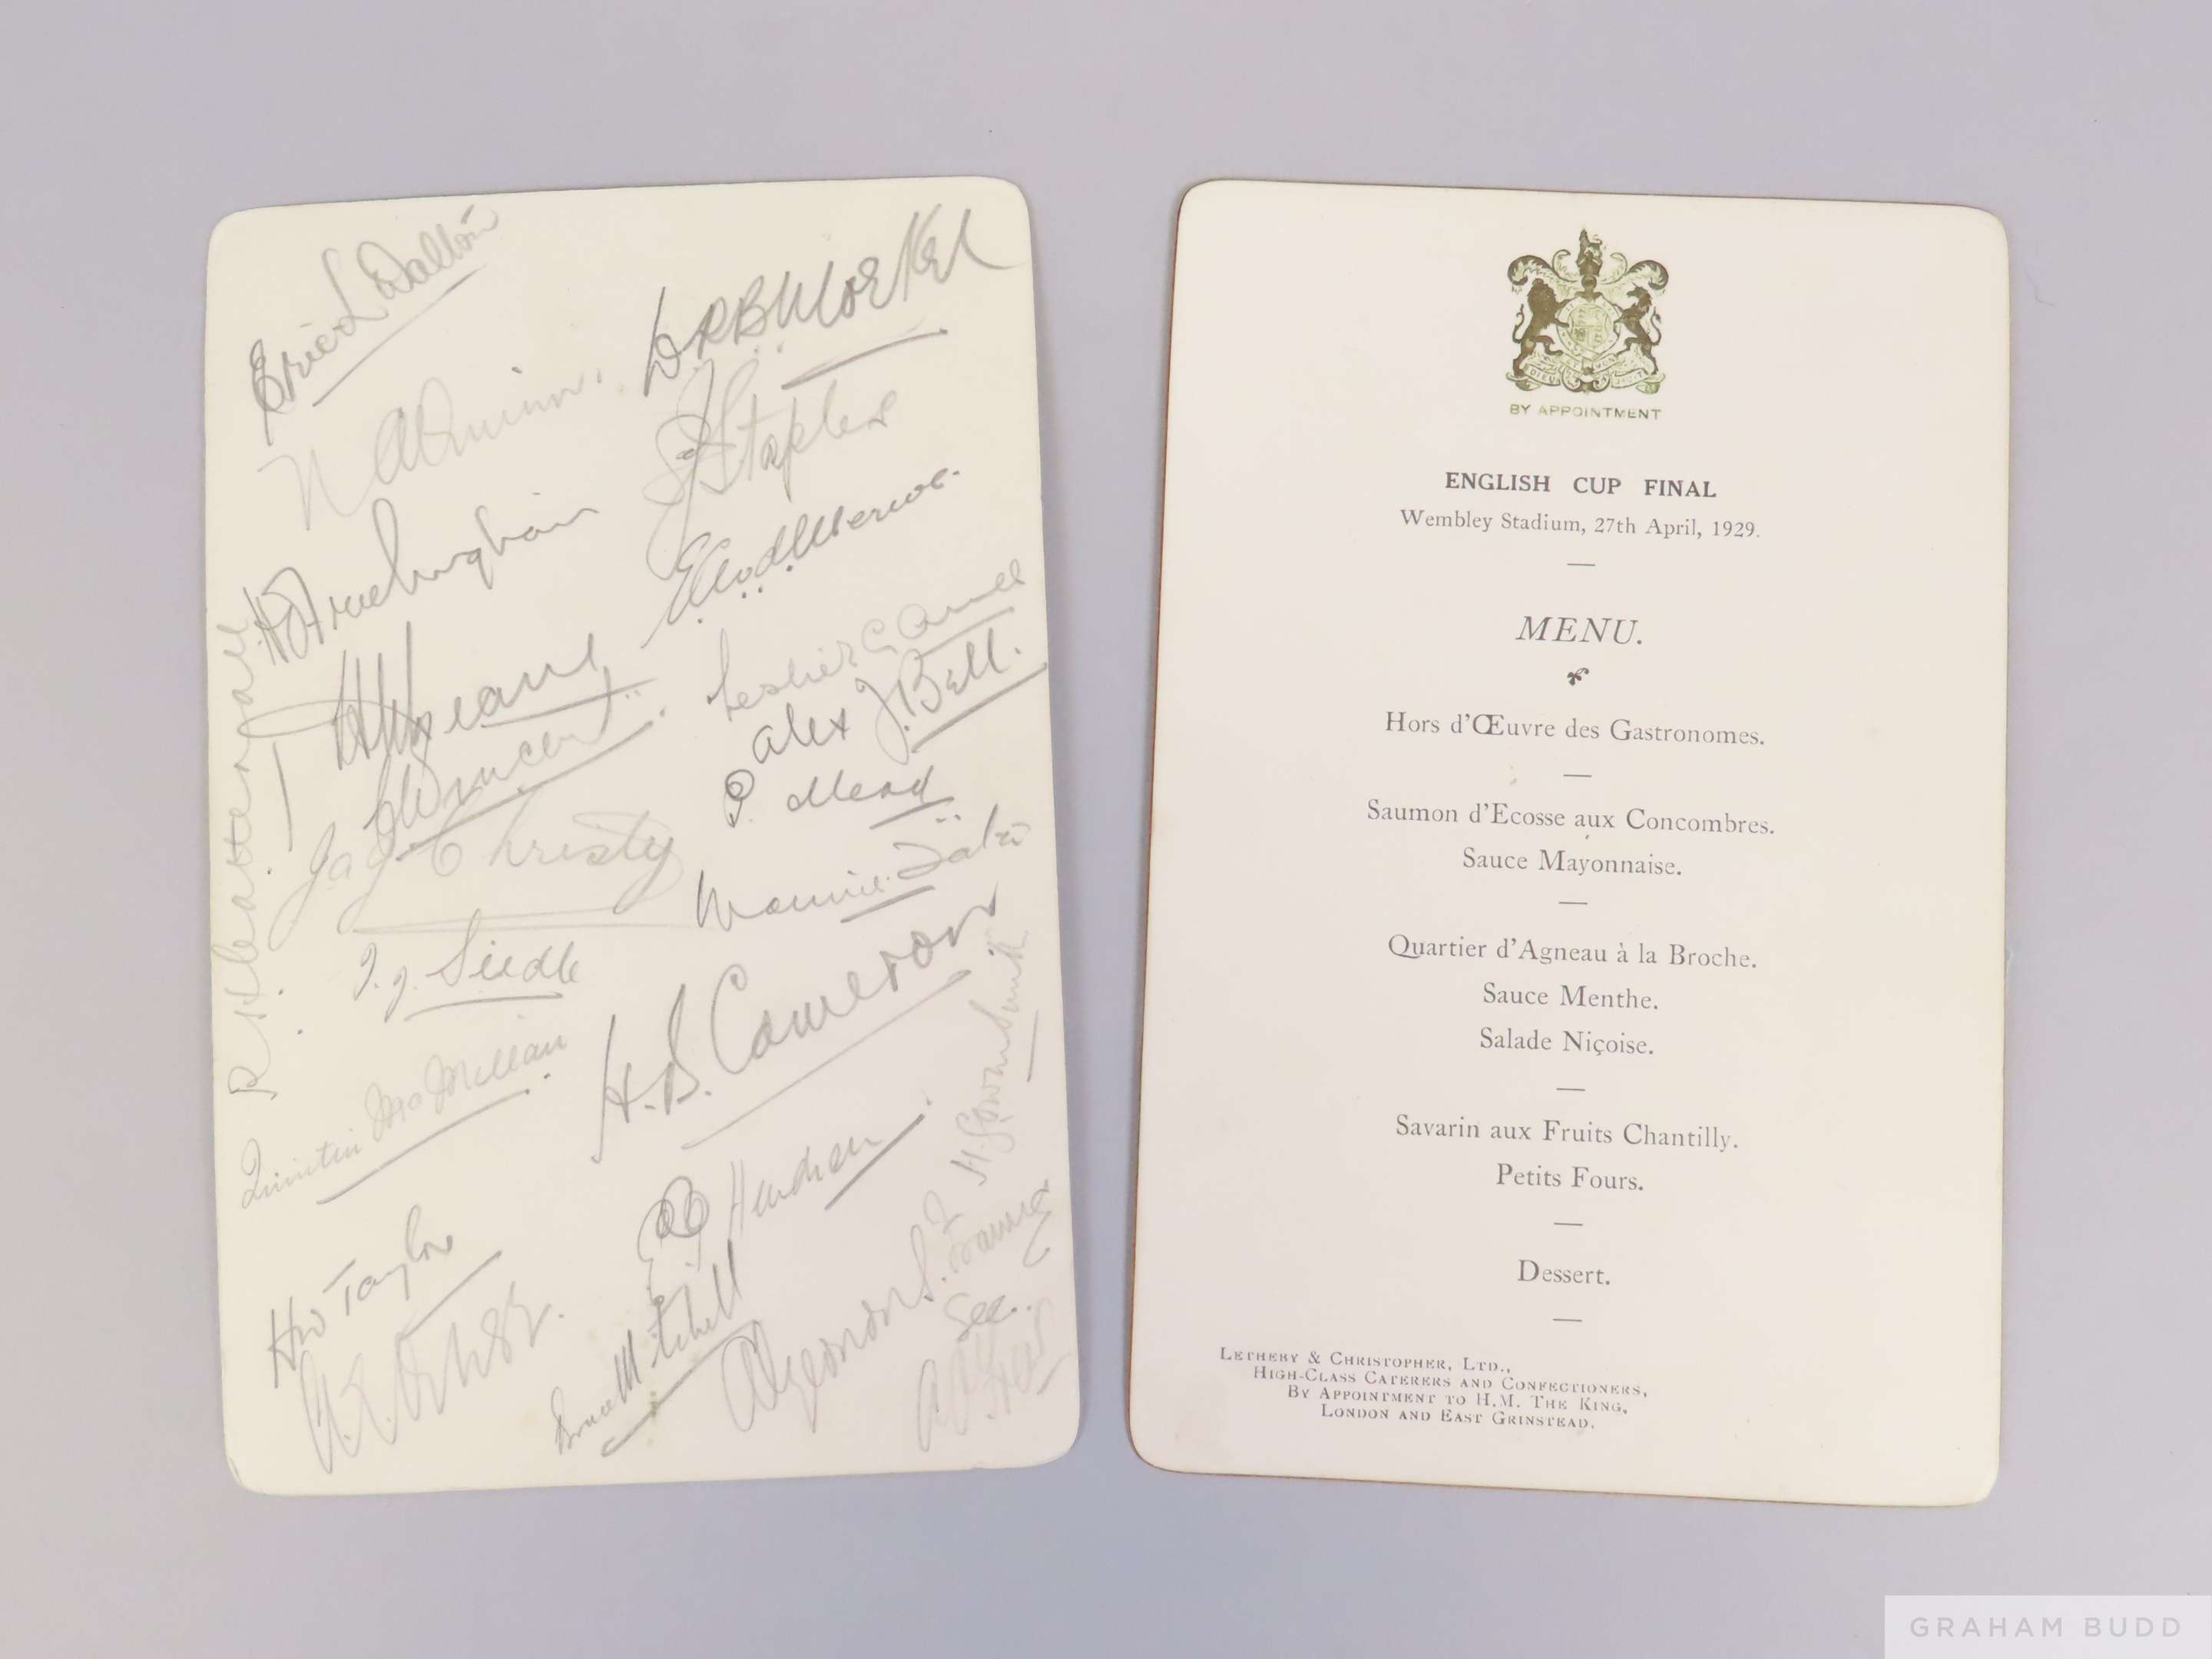 Eric L Dalton
D.P.B. Morkel
N A Quinn.
J Staples
E A v d Merwe.
H G Deane
Leslie G Ames
Alex J. Bell.
P. Mead
Maurice Tate
Jas J Christy
I. J. Siedle
H. B. Cameron
R H Catterall
Quintin McMillan
H G Owen Smith
Hendren
H W Taylor
Bruce Mitchell
Algernon S. Frames
Sec.
BY APPOINTMENT
ENGLISH CUP FINAL
Wembley Stadium, 27th April, 1929.
MENU.
Hors d'Œuvre des Gastronomes.
Saumon d'Ecosse aux Concombres.
Sauce Mayonnaise.
Quartier d'Agneau à la Broche.
Sauce Menthe.
Salade Niçoise.
Savarin aux Fruits Chantilly.
Petits Fours.
Dessert.
LETHEBY & CHRISTOPHER, LTD.,
HIGH-CLASS CATERERS AND CONFECTIONERS,
BY APPOINTMENT TO H.M. THE KING,
LONDON AND EAST GRINSTEAD.
GRAHAM BUDD